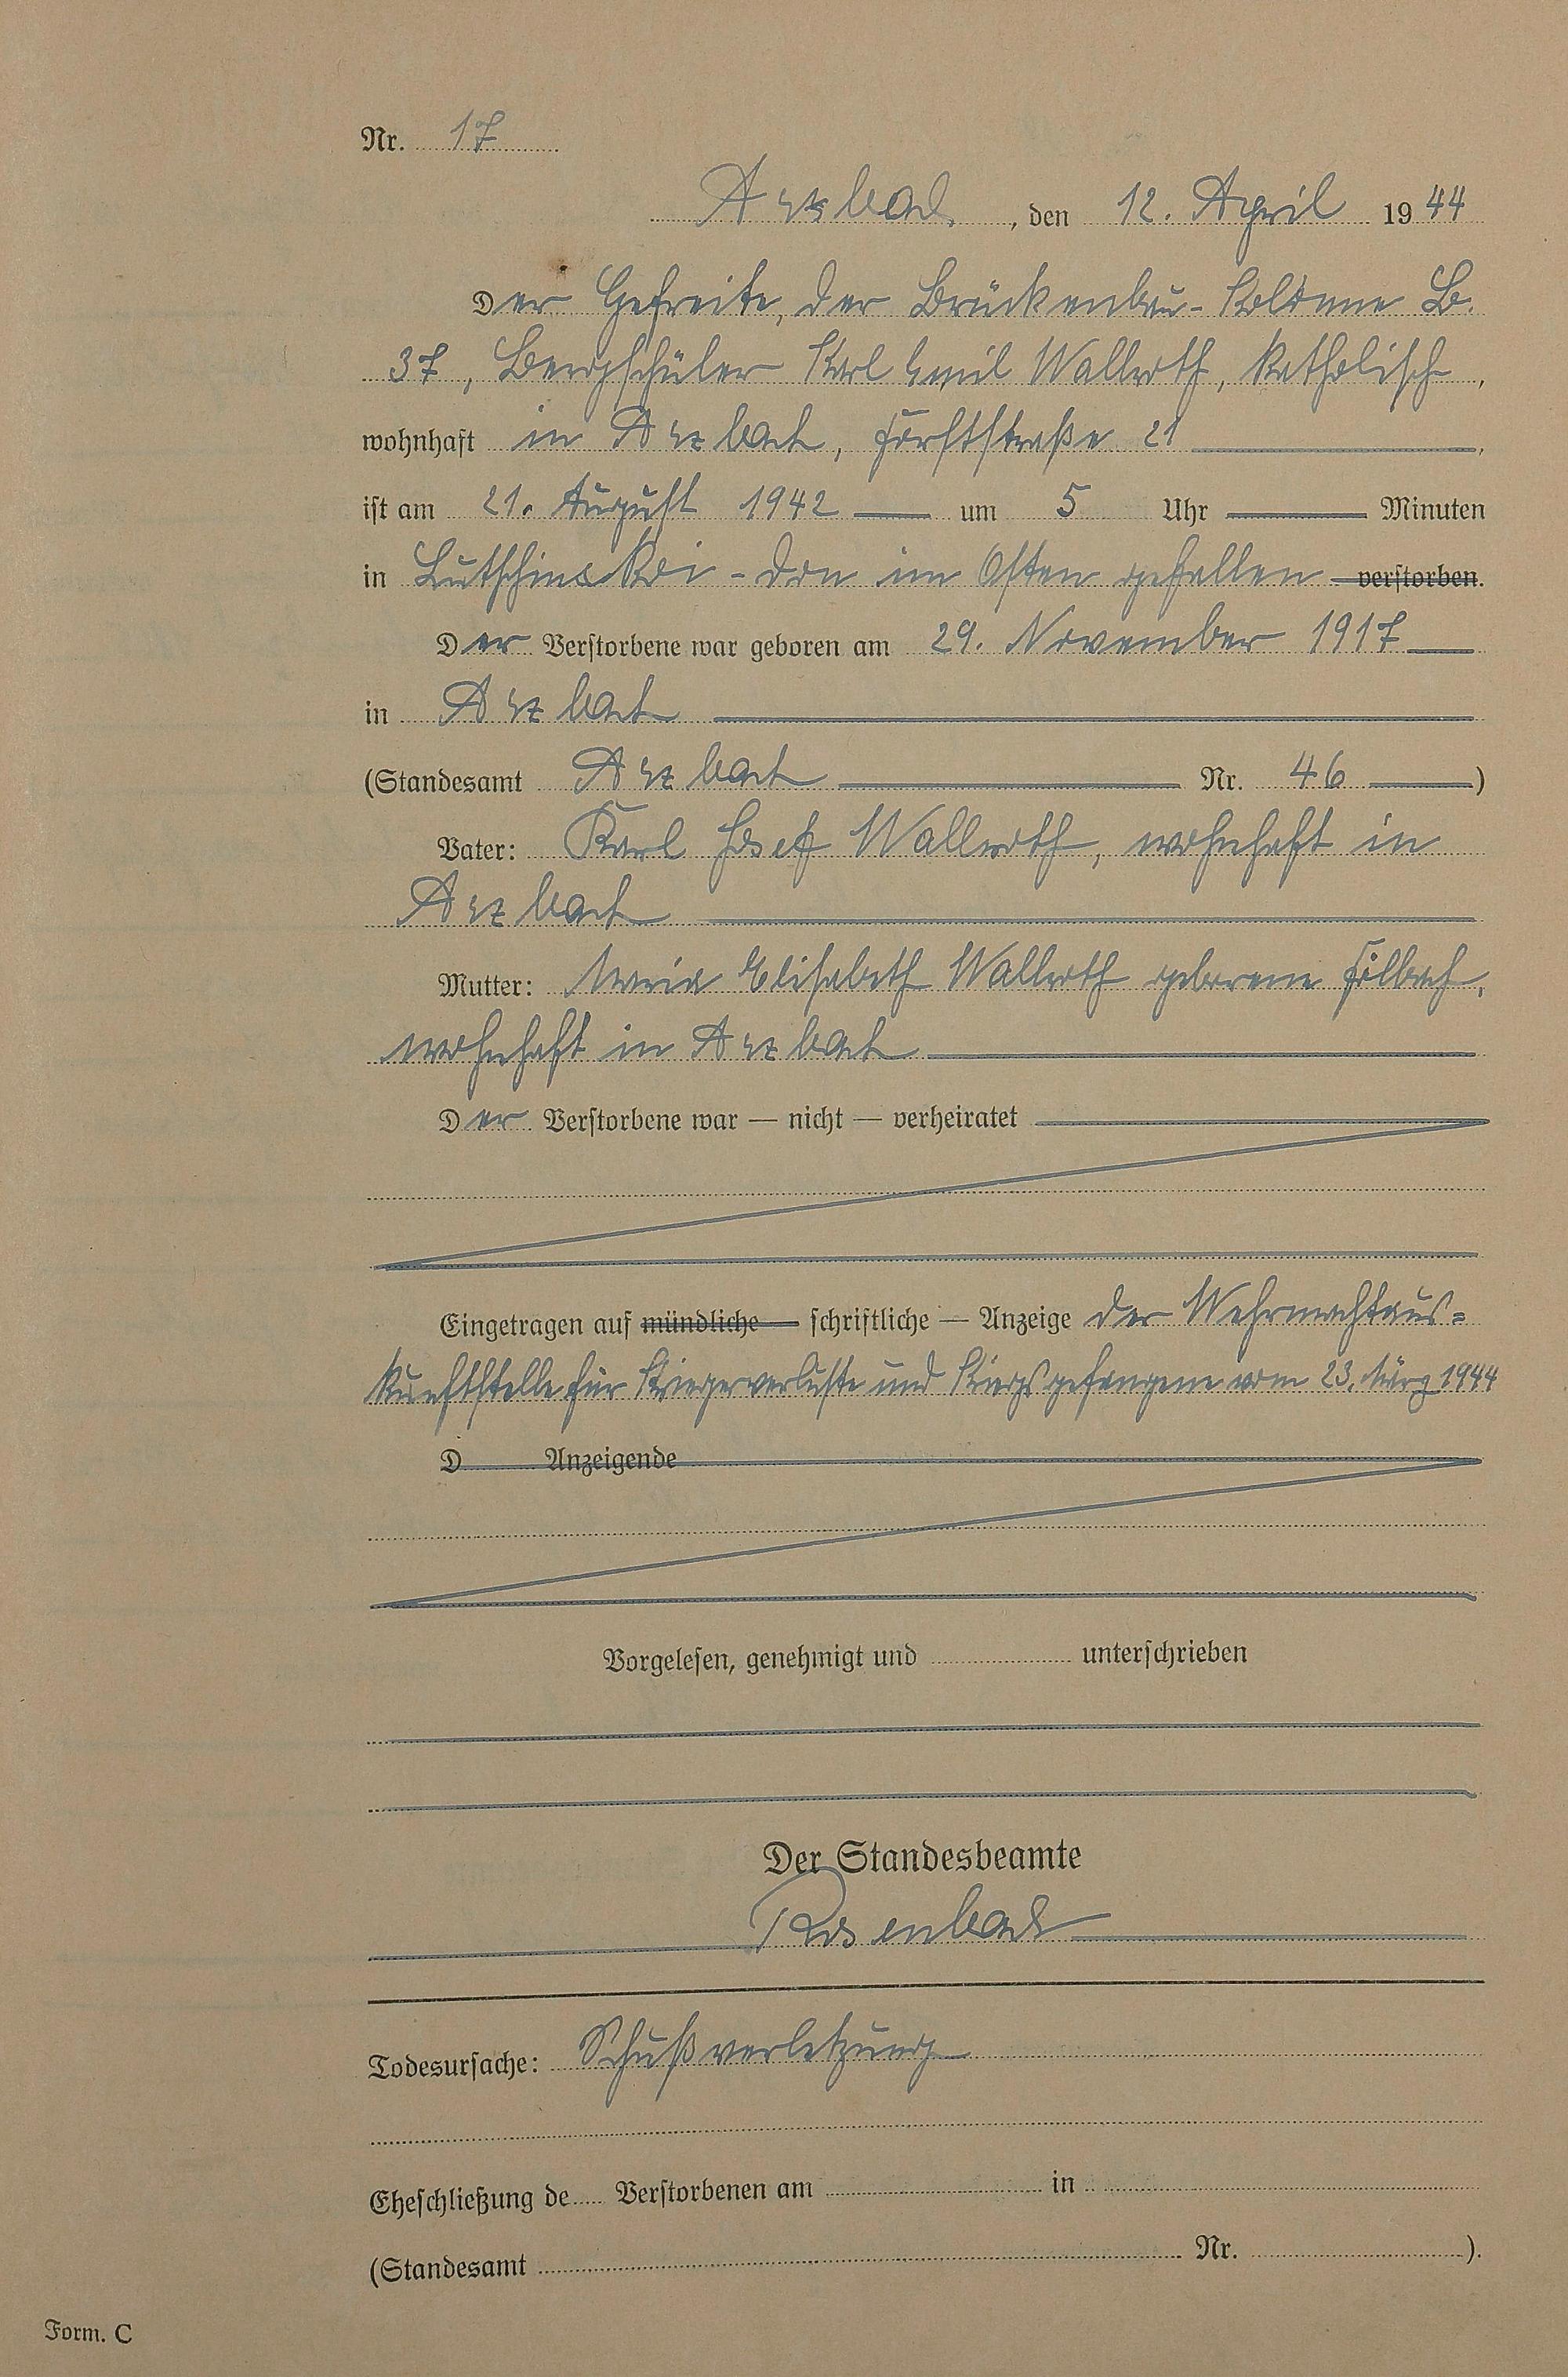 Nr. 17
Arzbach, den 12. April 1944
Der Gefreite, der Brückenbau-Kolonne B.
37, Bergschüler Karl Emil Wallroth, katholisch,
wohnhaft in Arzbach, Forststraße 21,
ist am 21. August 1942 um 5 Uhr Minuten
in Lutschinskoi-Don im Osten gefallen verstorben.
Der Verstorbene war geboren am 29. November 1917
in Arzbach
(Standesamt Arzbach Nr. 46)
Vater: Karl Josef Wallroth, wohnhaft in
Arzbach
Mutter: Maria Elisabeth Wallroth geborene Filbach,
wohnhaft in Arzbach
Der Verstorbene war — nicht — verheiratet
Eingetragen auf mündliche — schriftliche — Anzeige der Wehrmachtaus=
kunftstelle für Kriegerverluste und Kriegsgefangene vom 23. März 1944
D Anzeigende
Vorgelesen, genehmigt und unterschrieben
Der Standesbeamte
Rosenbach
Todesursache: Schußverletzung
Eheschließung de Verstorbenen am in
(Standesamt Nr. ).
Form. C